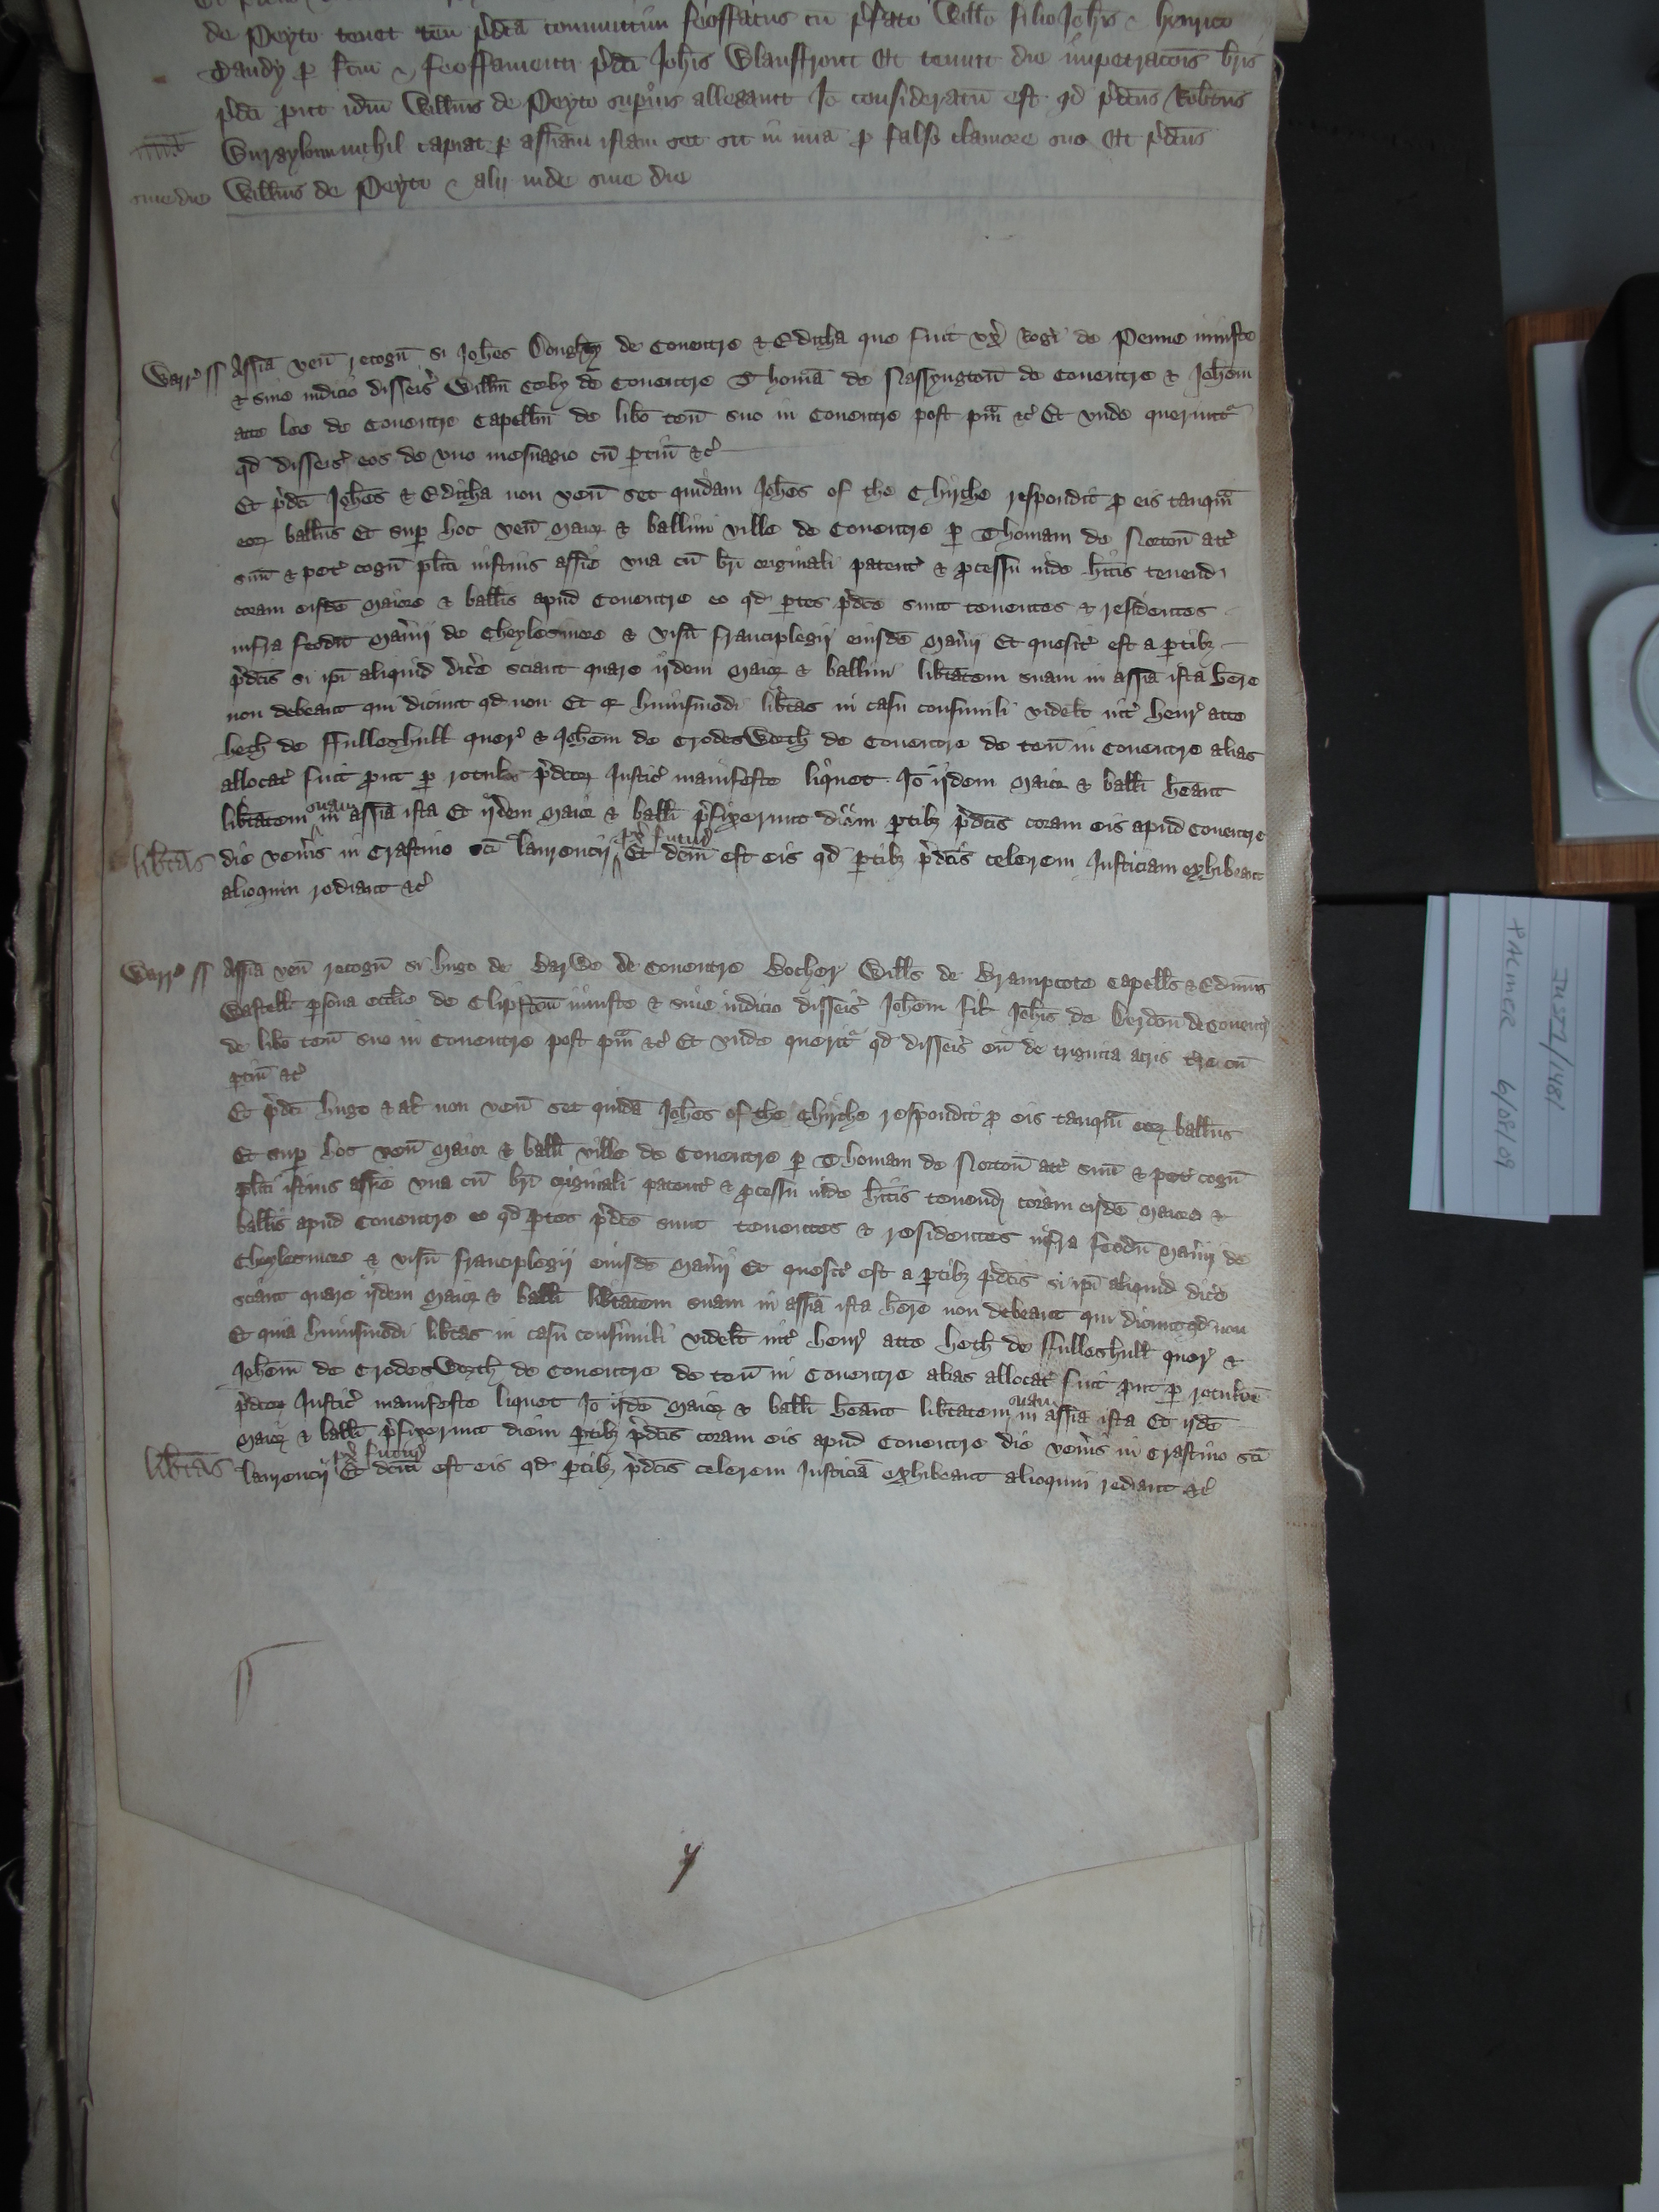 de Peyto tenet ten̄ p̄dc̄a coniunctim feoffatus cū p̄fato Willo filio Joh̄is & Henrico
Dandy p fc̄m & feoffamentū p̄dc̄i Joh̄is Blaunfront Et tenuit die impetrac̄ois br̄is
p̄dc̄i prout idm̄ Willm̄s de Peyto sup̄ius allegauit Jo consideratū est qd p̄dc̄us Rob̄tus
nichil capiat p assīam istam set sit in mīa p falso clamore suo Et p̄dc̄us
sine die Willm̄s de Peyto & alij inde sine die
Warr' ss Assīa ven̄ recogn̄ si Joh̄es Doughty de Couentre & Editha que fuit vx' Rogi de Penne iniuste
& sine iudicio disseis' Willm̄ Coby de Couentre Thomā de Nassyngton̄ de Couentre & Joh̄em
atte lee de Couentre Capellm̄ de libo ten̄ suo in Couentre post pm̄ā &c' Et vnde queruntr
qd disseis' eos de vno mesuagio cū ptin̄ &c'
Et p̄dc̄i Joh̄es & Editha non ven̄ set quidam Joh̄es of the Chirche respondit p eis tanqm̄
eor ballīus Et sup hoc ven̄ Maior & balliui ville de Couentre p Thomam de Norton̄ att'
suū & pet' cogn̄ pl̄iti istius assīe vna cū br̄i originali patent' & pcessu inde h̄itis tenend
coram eisdē Maiore & ballīs apud Couentre eo qd ptes p̄dc̄e sunt tenentes & residentes
infra feodū Man̄ij de Cheylesmore & visū franciplegij eiusdē Man̄ij Et quesit' est a ptibz
p̄dc̄is si ip̄i aliquid dic̄e sciant quare ijdem Maior & balliui lib̄tatem suam in assīa ista h̄ere
non debeant qui dicunt qd non Et qr huiusmodi lib̄tas in casu consimili videlt int' Henr' atte
heth de ffulleshull quer' & Joh̄em de Crodesworth de Couentre de ten̄ in Couentre alias
allocat' fuit prout p rotulos p̄dc̄or Justic' manifeste liquet Jo ijdem Maior & ballī h̄eant
lib̄tatem suam in assīa ista Et ijdem Maior & ballī p̄fixerunt diem ptibz p̄dc̄is coram eis apud Couentre
lib̄tas die ven̄is in Crastino sc̄i laurencij px' futur' Et dcm̄ est eis qd ptibz p̄dc̄is celerem Justiciam exhibeant
alioquin rediant &c'
Warr' ss Assīa ven̄ recogn̄ si Hugo de Barwe de Couentre Bocher Wills de Brampcote Capells & Edmūs
Wastell psona ecclīe de Clipston̄ iniuste & sine iudicio disseis' Joh̄em fil Joh̄is de Beydon̄ de Couentr'
de libo ten̄ suo in Couentre post pm̄ā &c' Et vnde queritr qd disseis' eū de triginta acris tr̄e cū
ptin̄ &c'
Et p̄dc̄i Hugo & al' non ven̄ set quidā Joh̄es of the Chirche respondit p eis tanqm̄ eor ballīus
Et sup hoc ven̄ Maior & ballī ville de Couentre p Thomam de Norton̄ att' suū & pet' cogn̄
pl̄iti istius assīe vna cū br̄i originali patent' & pcessu inde h̄itis tenend coram eisdē Maiore &
ballīs apud Couentre eo qd ptes p̄dc̄e sunt tenentes & residentes infra feodū Man̄ij de
Cheylesmore & visū franciplegij eiusdē Man̄ij Et quesit' est a ptibz p̄dc̄is si ip̄i aliquid dic̄e
sciant quare ijdem Maior & ballī lib̄tatem suam in assīa ista h̄ere non debeant qui dicunt qd non
Et quia huiusmodi lib̄tas in casu consimili videlt int' Henr' atte heth de ffulleshull quer' &
Joh̄em de Crodesworth de Couentre de ten̄ in Couentre alias allocat' fuit prout p rotulos
p̄dc̄or Justic' manifeste liquet Jo ijdē Maior & ballī h̄eant lib̄tatem suam in assīa ista Et ijdē
Maior & ballī p̄fixerunt diem ptibz p̄dc̄is coram eis apud Couentre die ven̄is in Crastino sc̄i
lib̄tas laurencij px' futur' Et dcm̄ est eis qd ptibz p̄dc̄is celerem Justiciā exhibeant alioquin rediant &c'
JUST1/1481
PALMER 6/08/09